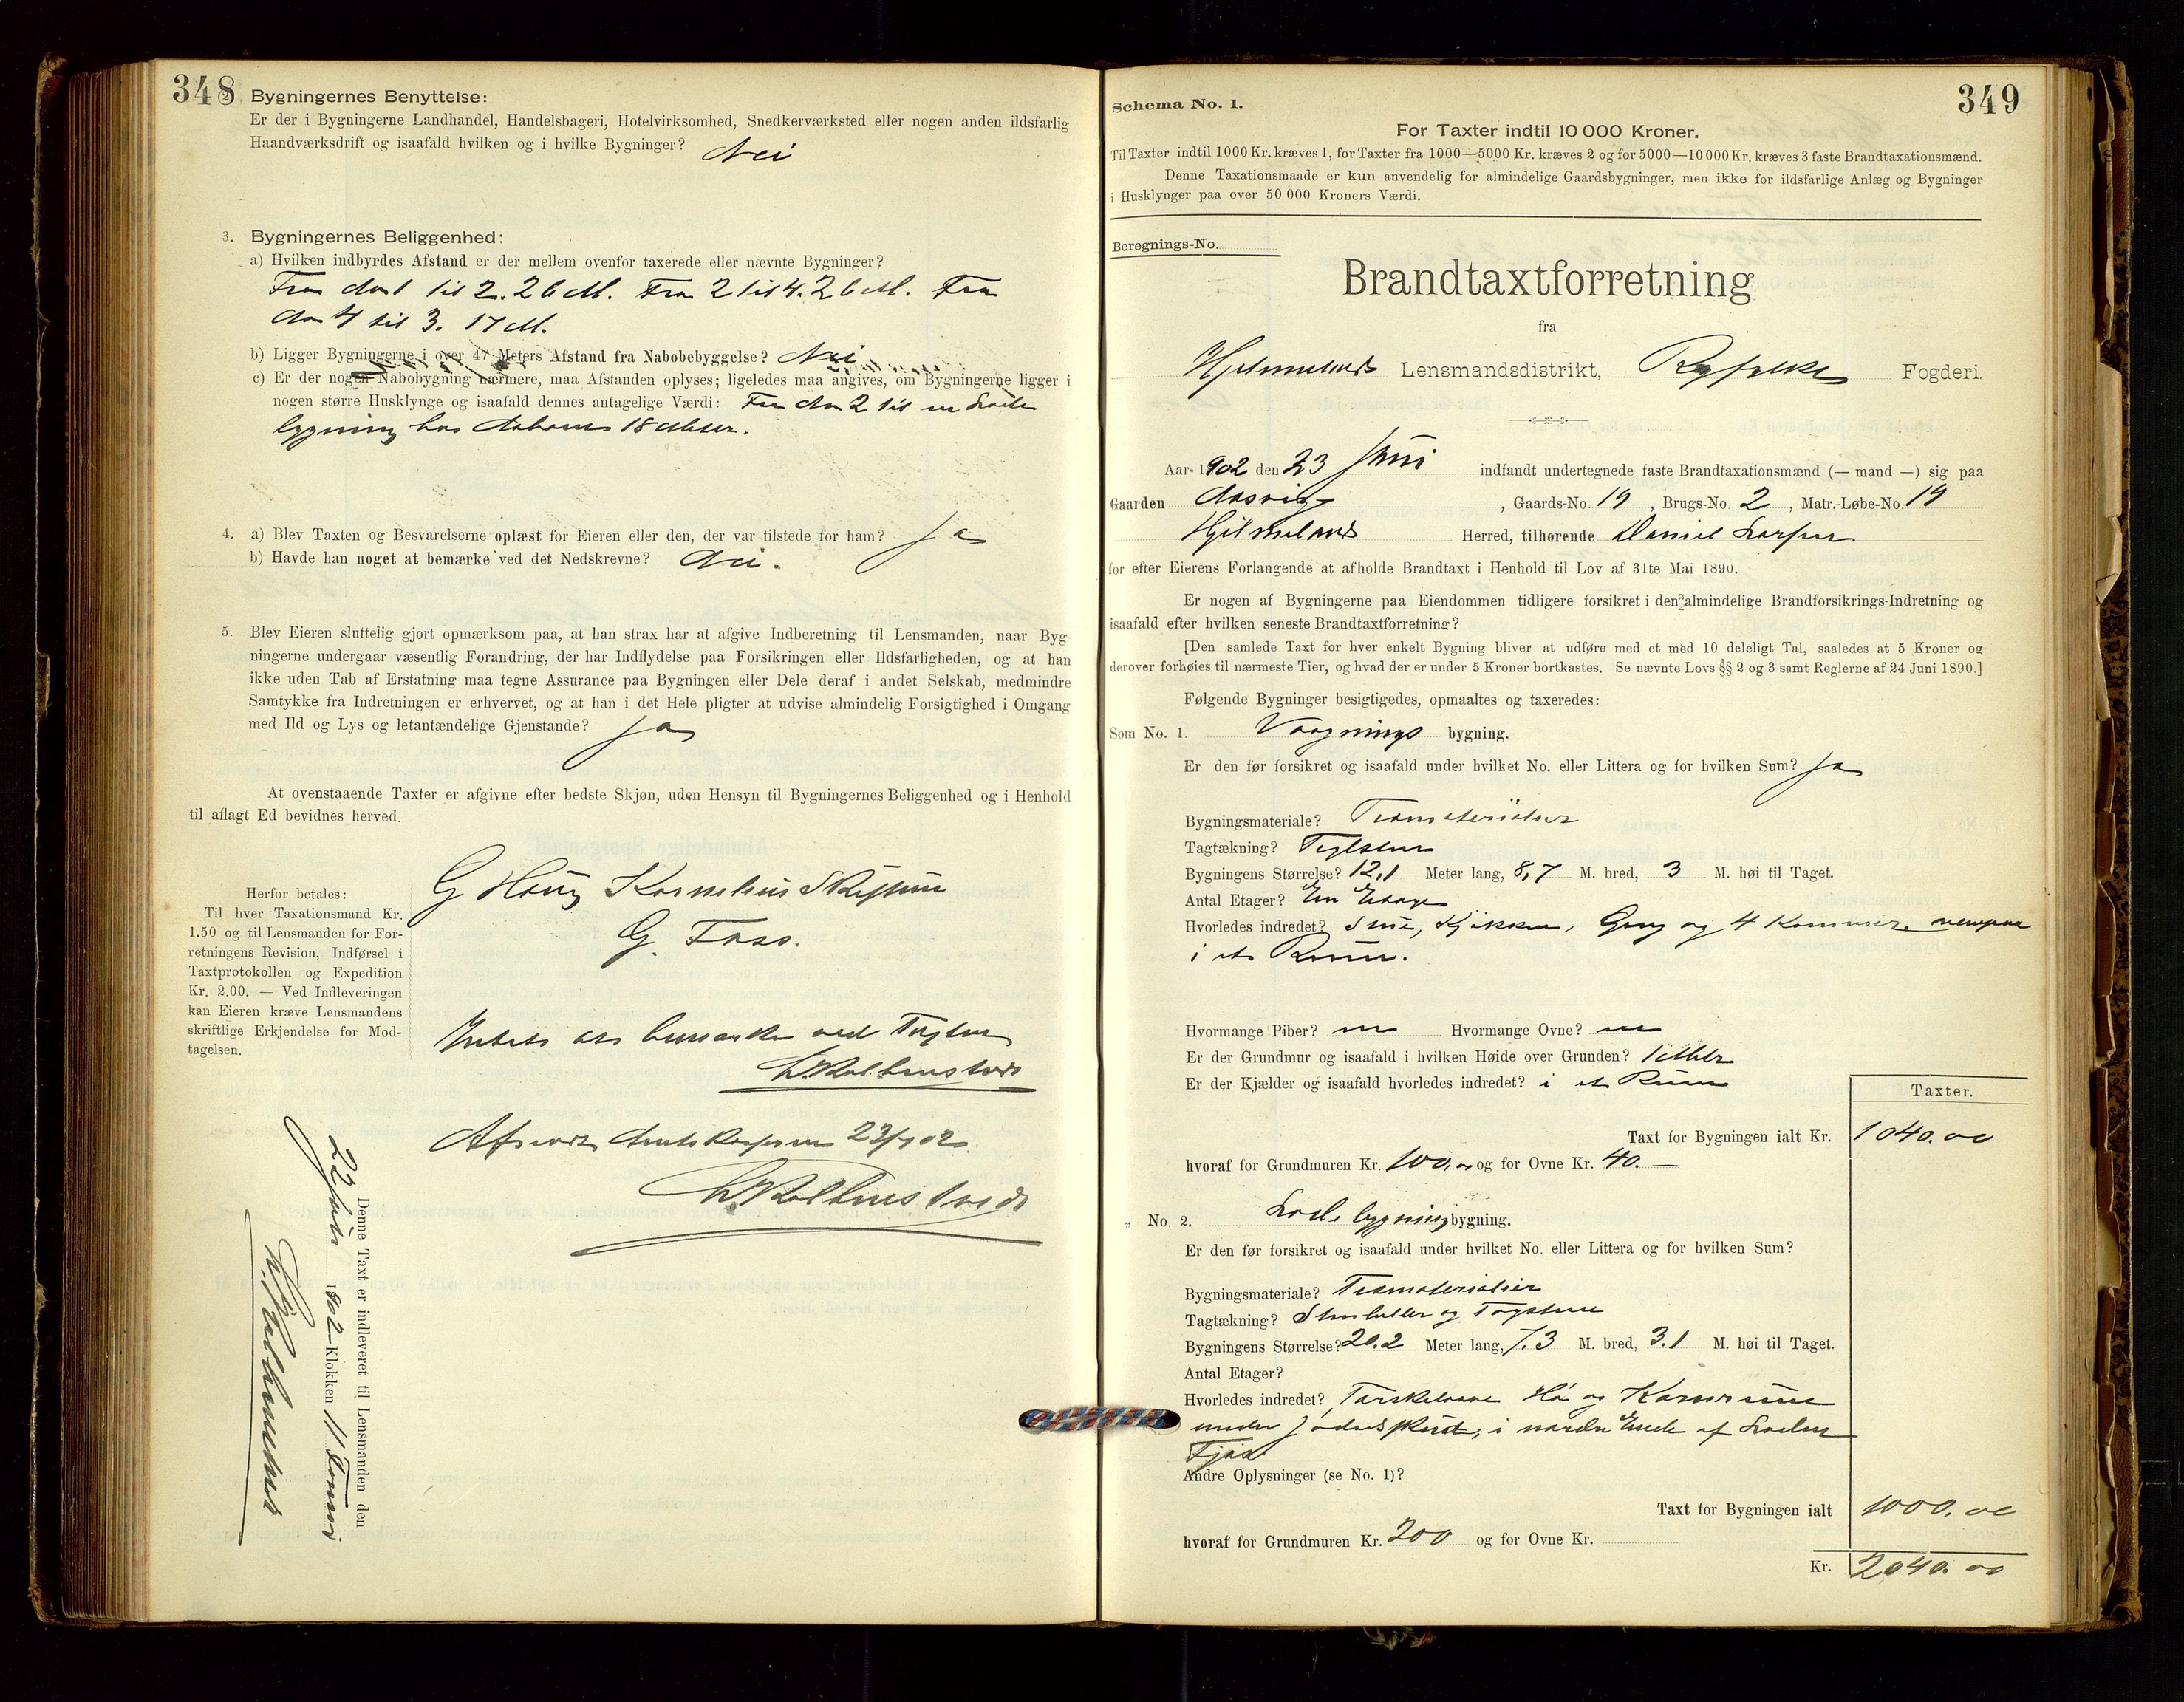 348
2. Bygningernes Benyttelse:
Er der i Bygningerne Landhandel, Handelsbageri, Hotelvirksomhed, Snedkerværksted eller nogen anden ildsfarlig
Haandværksdrift og isaafald hvilken og i hvilke Bygninger? Nei
3. Bygningernes Beliggenhed:
a) Hvilken indbyrdes Afstand er der mellem ovenfor taxerede eller nævnte Bygninger?
Fra No 1 til 2. 26 M. Fra 2 til 4. 26 M. Fra
No 4 til 3. 17 M.
b) Ligger Bygningerne i over 47 Meters Afstand fra Nabobebyggelse? Nei
c) Er der nogen Nabobygning nærmere, maa Afstanden oplyses; ligeledes maa angives, om Bygningerne ligger i
nogen større Husklynge og isaafald dennes antagelige Værdi: Fra No 2 til en Lade
bygning hos Naboens 18 Meter.
4. a) Blev Taxten og Besvarelserne oplæst for Eieren eller den, der var tilstede for ham? Ja
b) Havde han noget at bemærke ved det Nedskrevne? Nei.
5. Blev Eieren sluttelig gjort opmærksom paa, at han strax har at afgive Indberetning til Lensmanden, naar Byg-
ningerne undergaar væsentlig Forandring, der har Indflydelse paa Forsikringen eller Ildsfarligheden, og at han
ikke uden Tab af Erstatning maa tegne Assurance paa Bygningen eller Dele deraf i andet Selskab, medmindre
Samtykke fra Indretningen er erhvervet, og at han i det Hele pligter at udvise almindelig Forsigtighed i Omgang
med Ild og Lys og letantændelige Gjenstande? Ja
At ovenstaaende Taxter er afgivne efter bedste Skjøn, uden Hensyn til Bygningernes Beliggenhed og i Henhold
til aflagt Ed bevidnes herved.
G Houg Kornelius
G. Foss.
Herfor betales:
Til hver Taxationsmand Kr.
1.50 og til Lensmanden for For-
retningens Revision, Indførsel i
Taxtprotokollen og Expedition
Kr. 2.00. — Ved Indleveringen
kan Eieren kræve Lensmandens
skriftlige Erkjendelse for Mod-
tagelsen.
Intet at bemærke ved Taxten
23/7 02
Denne Taxt er indleveret til Lensmanden den
22 Juli 1902 Klokken 11 Formid
349
Schema No. 1.
For Taxter indtil 10 000 Kroner.
Til Taxter indtil 1000 Kr. kræves 1, for Taxter fra 1000—5000 Kr. kræves 2 og for 5000—10 000 Kr. kræves 3 faste Brandtaxationsmænd.
Denne Taxationsmaade er kun anvendelig for almindelige Gaardsbygninger, men ikke for ildsfarlige Anlæg og Bygninger
i Husklynger paa over 50 000 Kroners Værdi.
Beregnings-No.
Brandtaxtforretning
fra
Hjelmelands Lensmandsdistrikt, Ryfylke Fogderi.
Aar 1902 den 23 Juni indfandt undertegnede faste Brandtaxationsmænd (— mand —) sig paa
Gaarden Aasvig, Gaards-No. 19, Brugs-No. 2, Matr.-Løbe-No. 19
Hjelmelands Herred, tilhørende Daniel Larsen
for efter Eierens Forlangende at afholde Brandtaxt i Henhold til Lov af 31te Mai 1890.
Er nogen af Bygningerne paa Eiendommen tidligere forsikret i den almindelige Brandforsikrings-Indretning og
isaafald efter hvilken seneste Brandtaxtforretning?
[Den samlede Taxt for hver enkelt Bygning bliver at udføre med et med 10 deleligt Tal, saaledes at 5 Kroner og
derover forhøies til nærmeste Tier, og hvad der er under 5 Kroner bortkastes. Se nævnte Lovs §§ 2 og 3 samt Reglerne af 24 Juni 1890.]
Følgende Bygninger besigtigedes, opmaaltes og taxeredes:
Som No. 1. Vaanings bygning.
Er den før forsikret og isaafald under hvilket No. eller Littera og for hvilken Sum? Ja
Bygningsmateriale? Træmaterialier
Tagtækning? Teglsten
Bygningens Størrelse? 12,1 Meter lang, 8,7 M. bred, 3 M. høi til Taget.
Antal Etager? En Etage
Hvorledes indredet? Stue, Kjøkken, Gang og 4 Kammer. ovenpaa
i et Rum.
Hvormange Piber? en Hvormange Ovne? en
Er der Grundmur og isaafald i hvilken Høide over Grunden? 1 Meter
Er der Kjælder og isaafald hvorledes indredet? i et Rum
Taxter.
Taxt for Bygningen ialt Kr. 1040.00
hvoraf for Grundmuren Kr. 100,00 og for Ovne Kr. 40. —
„ No. 2. Ladebygning bygning.
Er den før forsikret og isaafald under hvilket No. eller Littera og for hvilken Sum?
Bygningsmateriale? Træmaterialier
Tagtækning? Stenheller og Tagsten
Bygningens Størrelse? 20.2 Meter lang, 7.3 M. bred, 3.1 M. høi til Taget.
Antal Etager?
Hvorledes indredet? Tærskelaave Hø og Kornrum
under i nordre Ende af Laden
Fjøs
Andre Oplysninger (se No. 1)?
Taxt for Bygningen ialt 1000.00
hvoraf for Grundmuren Kr. 200 og for Ovne Kr.
Kr. 2040.00